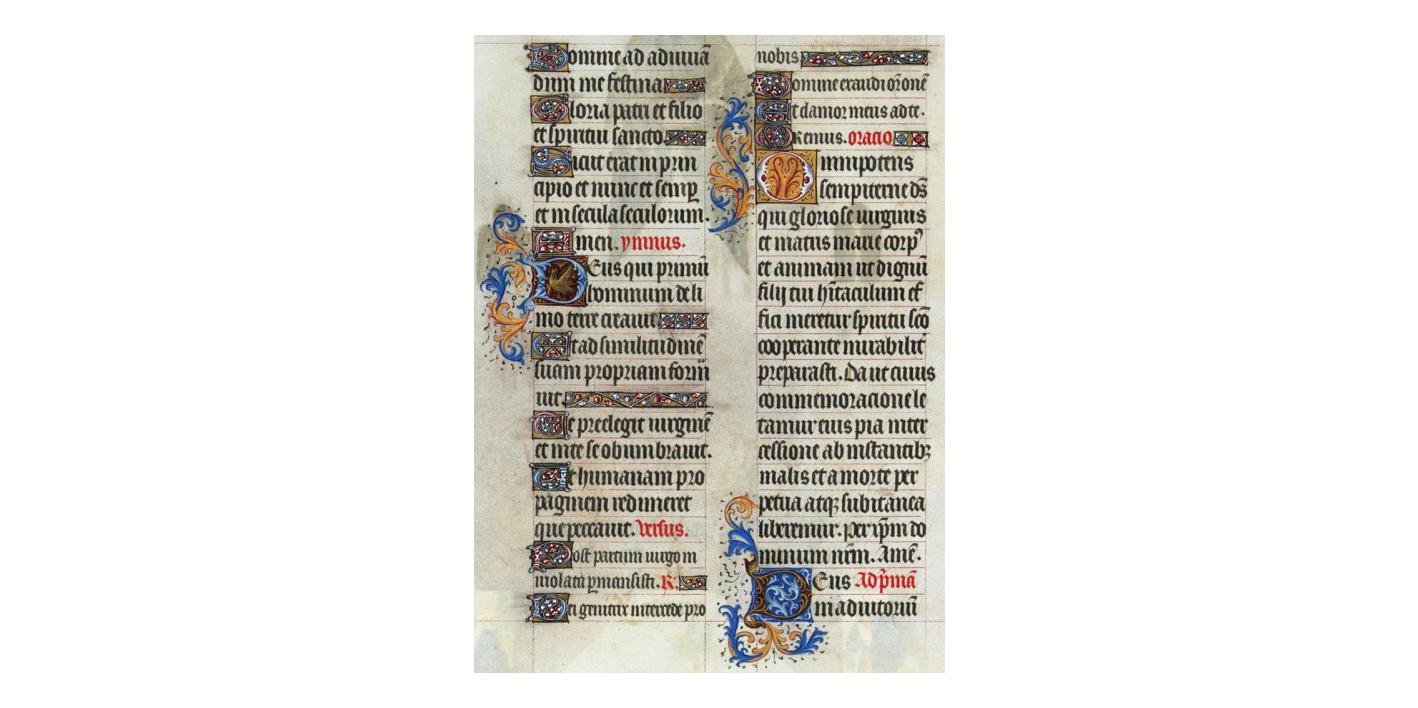 Domine ad adiuuā
dum me festina
Gloria patri et filio
et spiritui sancto.
Sicut erat in prin
cipio et nunc et semꝑ
et in secula seculorum.
Amen. ymnus.
Deus qui primū
hominum de li
mo terre creauit
Et ad similitudinē
suam propriam form̄
uit.
Te preelegit uirginē
et in te se obumbrauit.
Et humanam pro
paginem redimeret
que peccauit. Versus.
Post partum uirgo in
uiolata ꝑmansisti. R.
Dei genitrix intercede pro
nobis
Domine exaudi or̄onē
Et clamor meus ad te.
Oremus. oracio
Omnipotens
sempiterne ds̄
qui gloriose uirginis
et matris marie corpꝰ
et animam ut dignū
filij tui hītaculum ef
fici meretur spiritu sc̄o
cooperante mirabilit᷑
preparasti. Da ut cuius
commemoracione le
tamur eius pia inter
cessione ab instantibꝫ
malis et a morte per
petua atqꝫ subitanea
liberemur. Per ip̄m do
minum nr̄m. Amē.
Deus Ad pͥmā
in adiutoriū